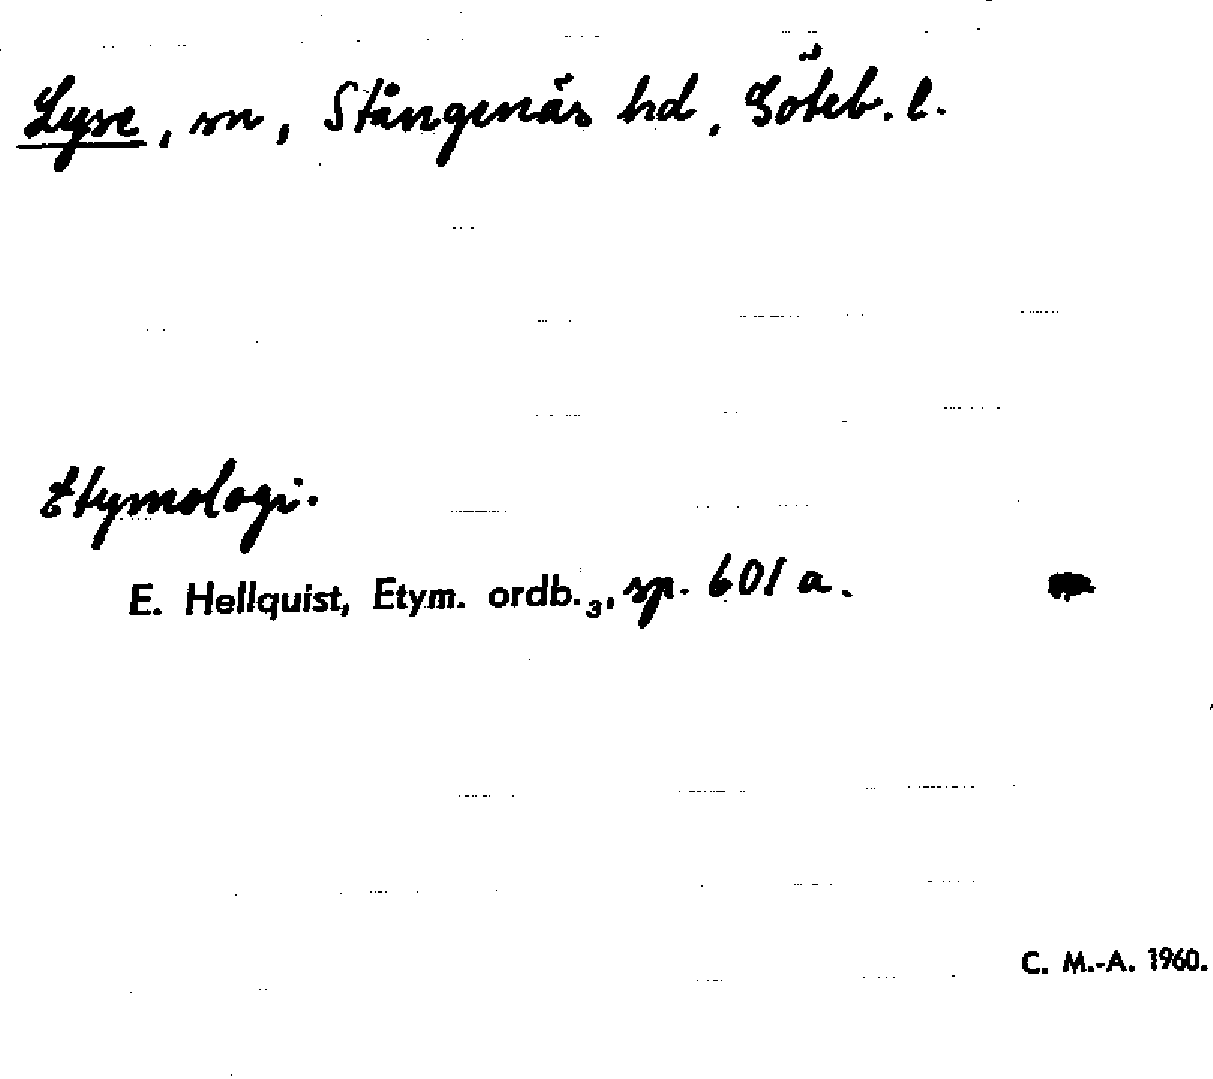 Lyse, sn, Stångenäs hd, Göteb. l.
Etymologi.
E. Hellquist, Etym. ordb.₃, sp. 601 a.
C. M.-A. 1960.